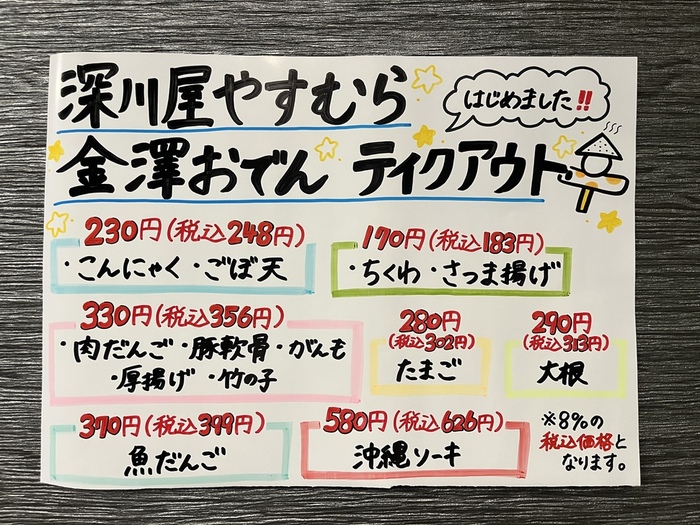 深川屋やすむら
はじめました!!
金澤おでん テイクアウト
230円(税込248円)
・こんにゃく・ごぼ天
170円(税込183円)
・ちくわ・さつま揚げ
330円(税込356円)
・肉だんご・豚軟骨・がんも
・厚揚げ ・竹の子
280円
(税込302円)
たまご
290円
(税込313円)
大根
370円(税込399円)
魚だんご
580円(税込626円)
沖縄ソーキ
※8%の
税込価格と
なります。